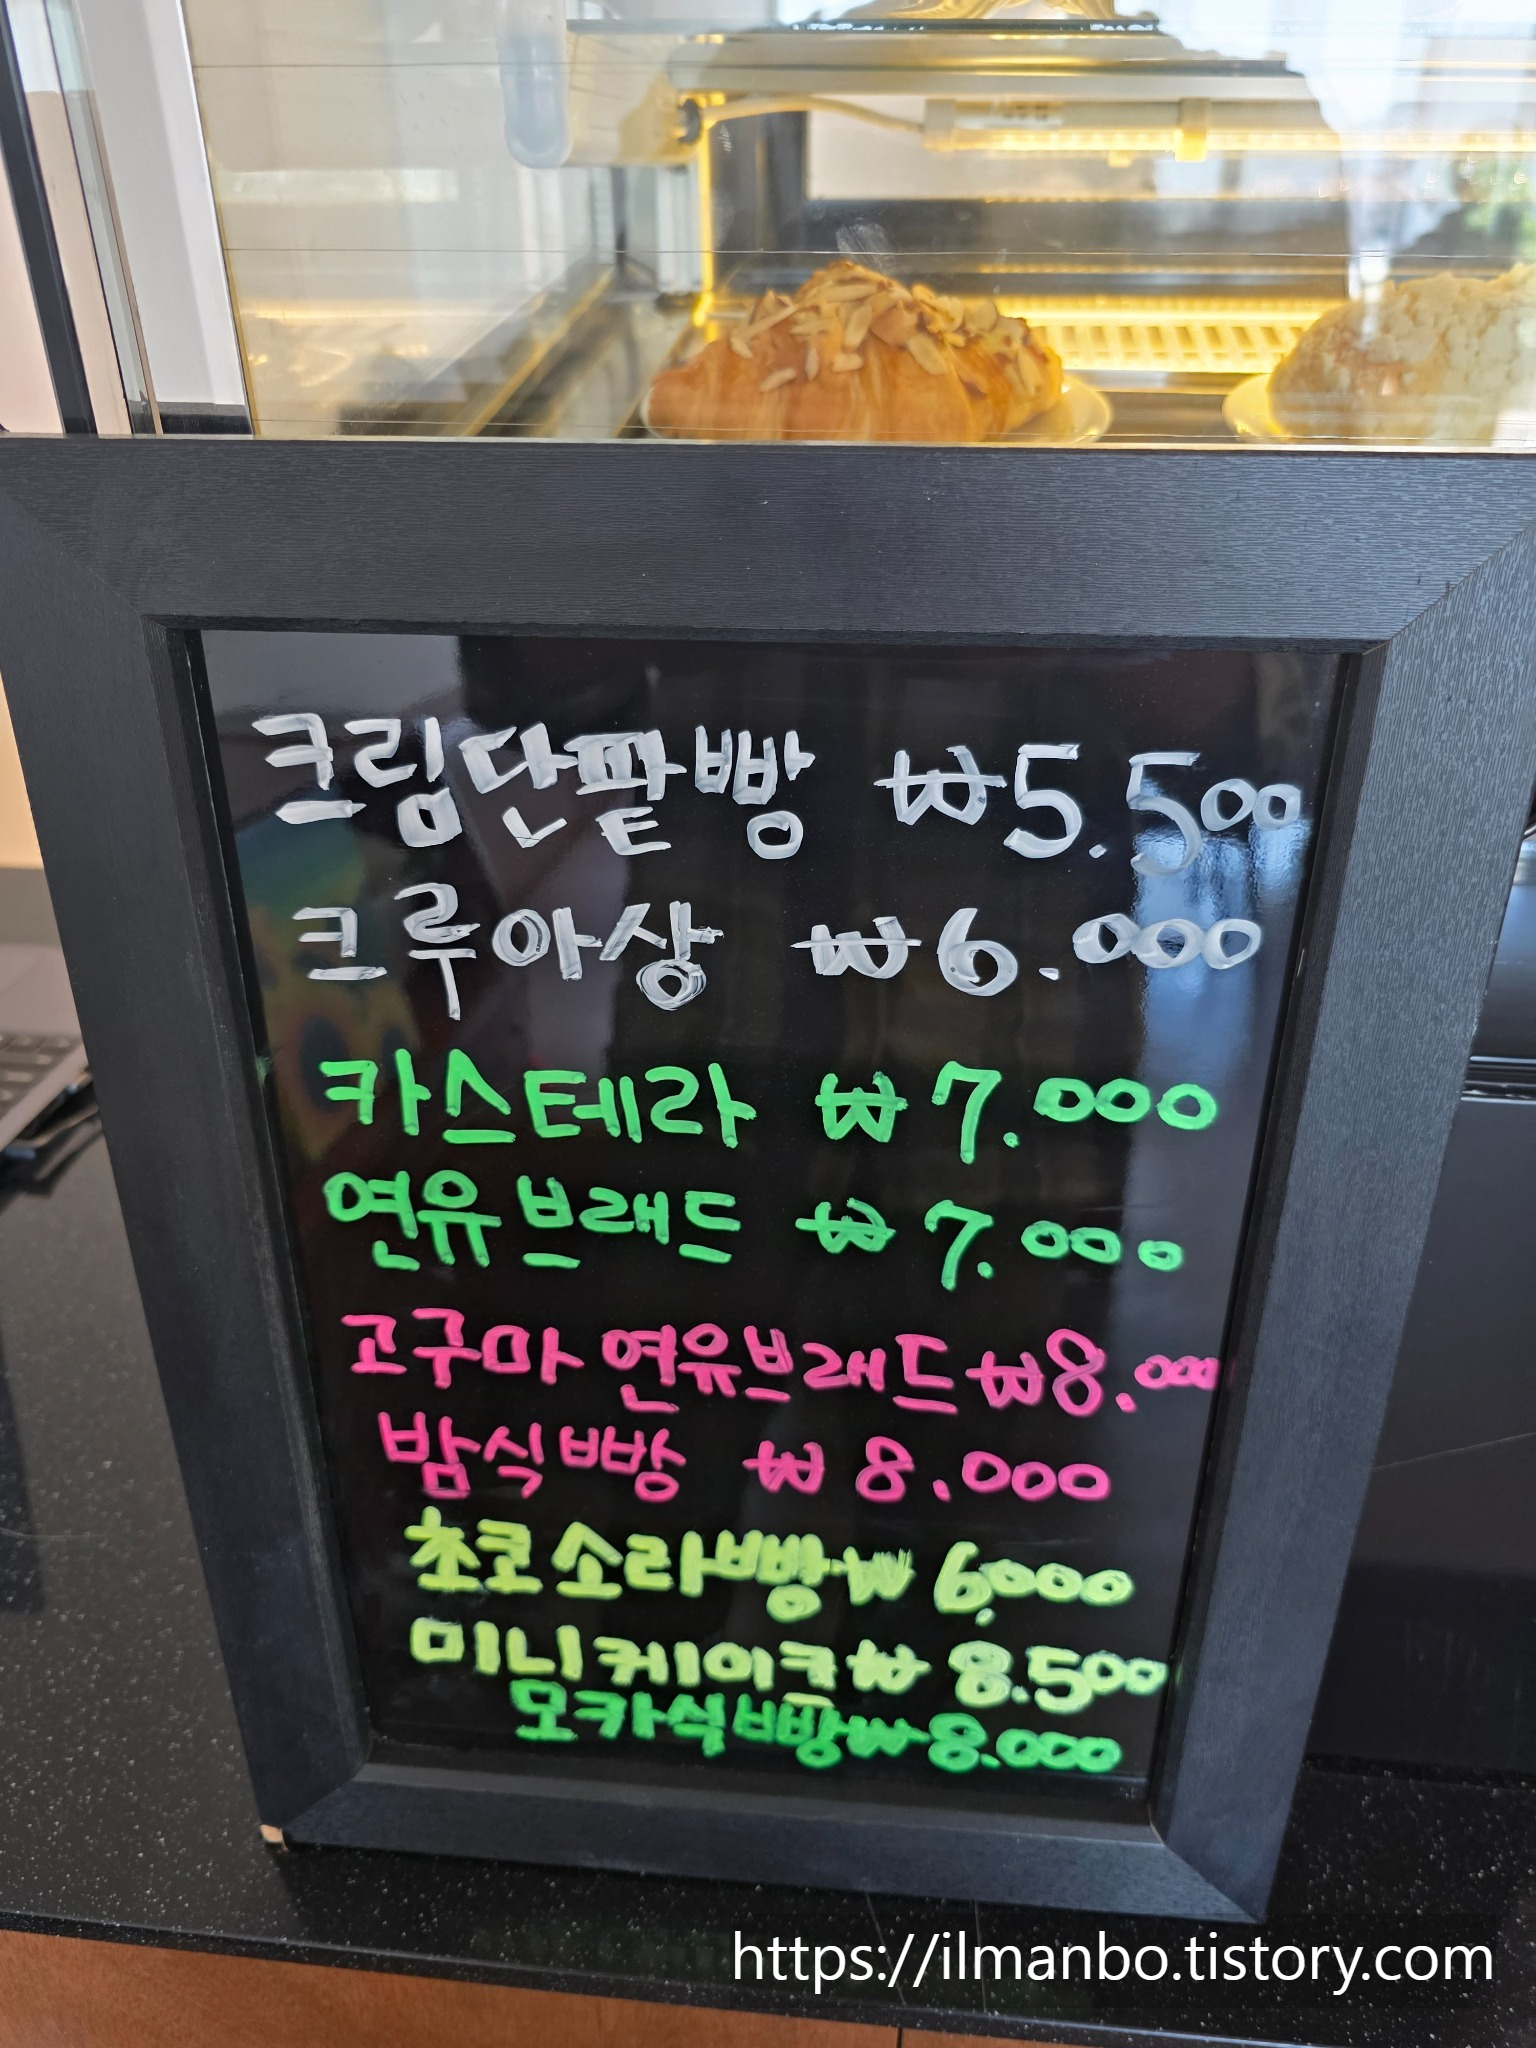 크림단팥빵 ₩5.500
크루아상 ₩6.000
카스테라 ₩7.000
연유브래드 ₩7.000
고구마 연유브래드 ₩8.000
밤식빵 ₩8.000
초코소라빵 ₩6.000
미니케이크 ₩8.500
모카식빵 ₩8.000
https://ilmanbo.tistory.com